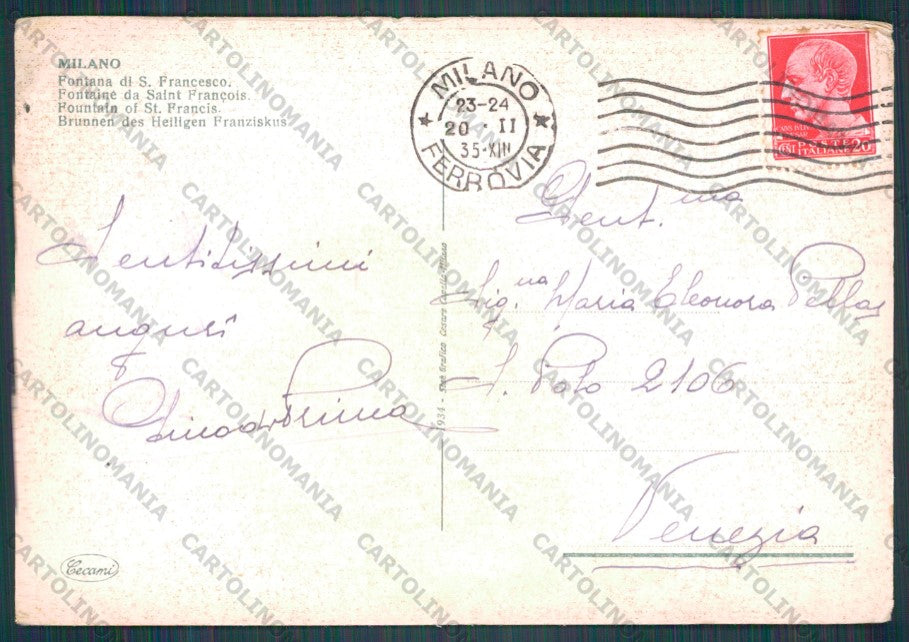 MILANO
Fontana di S. Francesco.
Fontaine da Saint François.
Fountain of St. Francis.
Brunnen des Heiligen Franziskus
MILANO
23-24
20 · II
35-XIII
FERROVIA
POSTE
ITALIANE
20
Gent.ma
Sig.na Maria Eleonora
S. Polo 2106
Venezia
Sentitissimi
auguri
1934 - Stab. Grafico Cesare Capello - Milano
Cecami
CARTOLINOMANIA